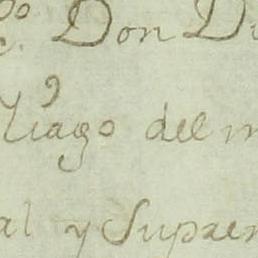 Don D
tiago del m
al y Suprem